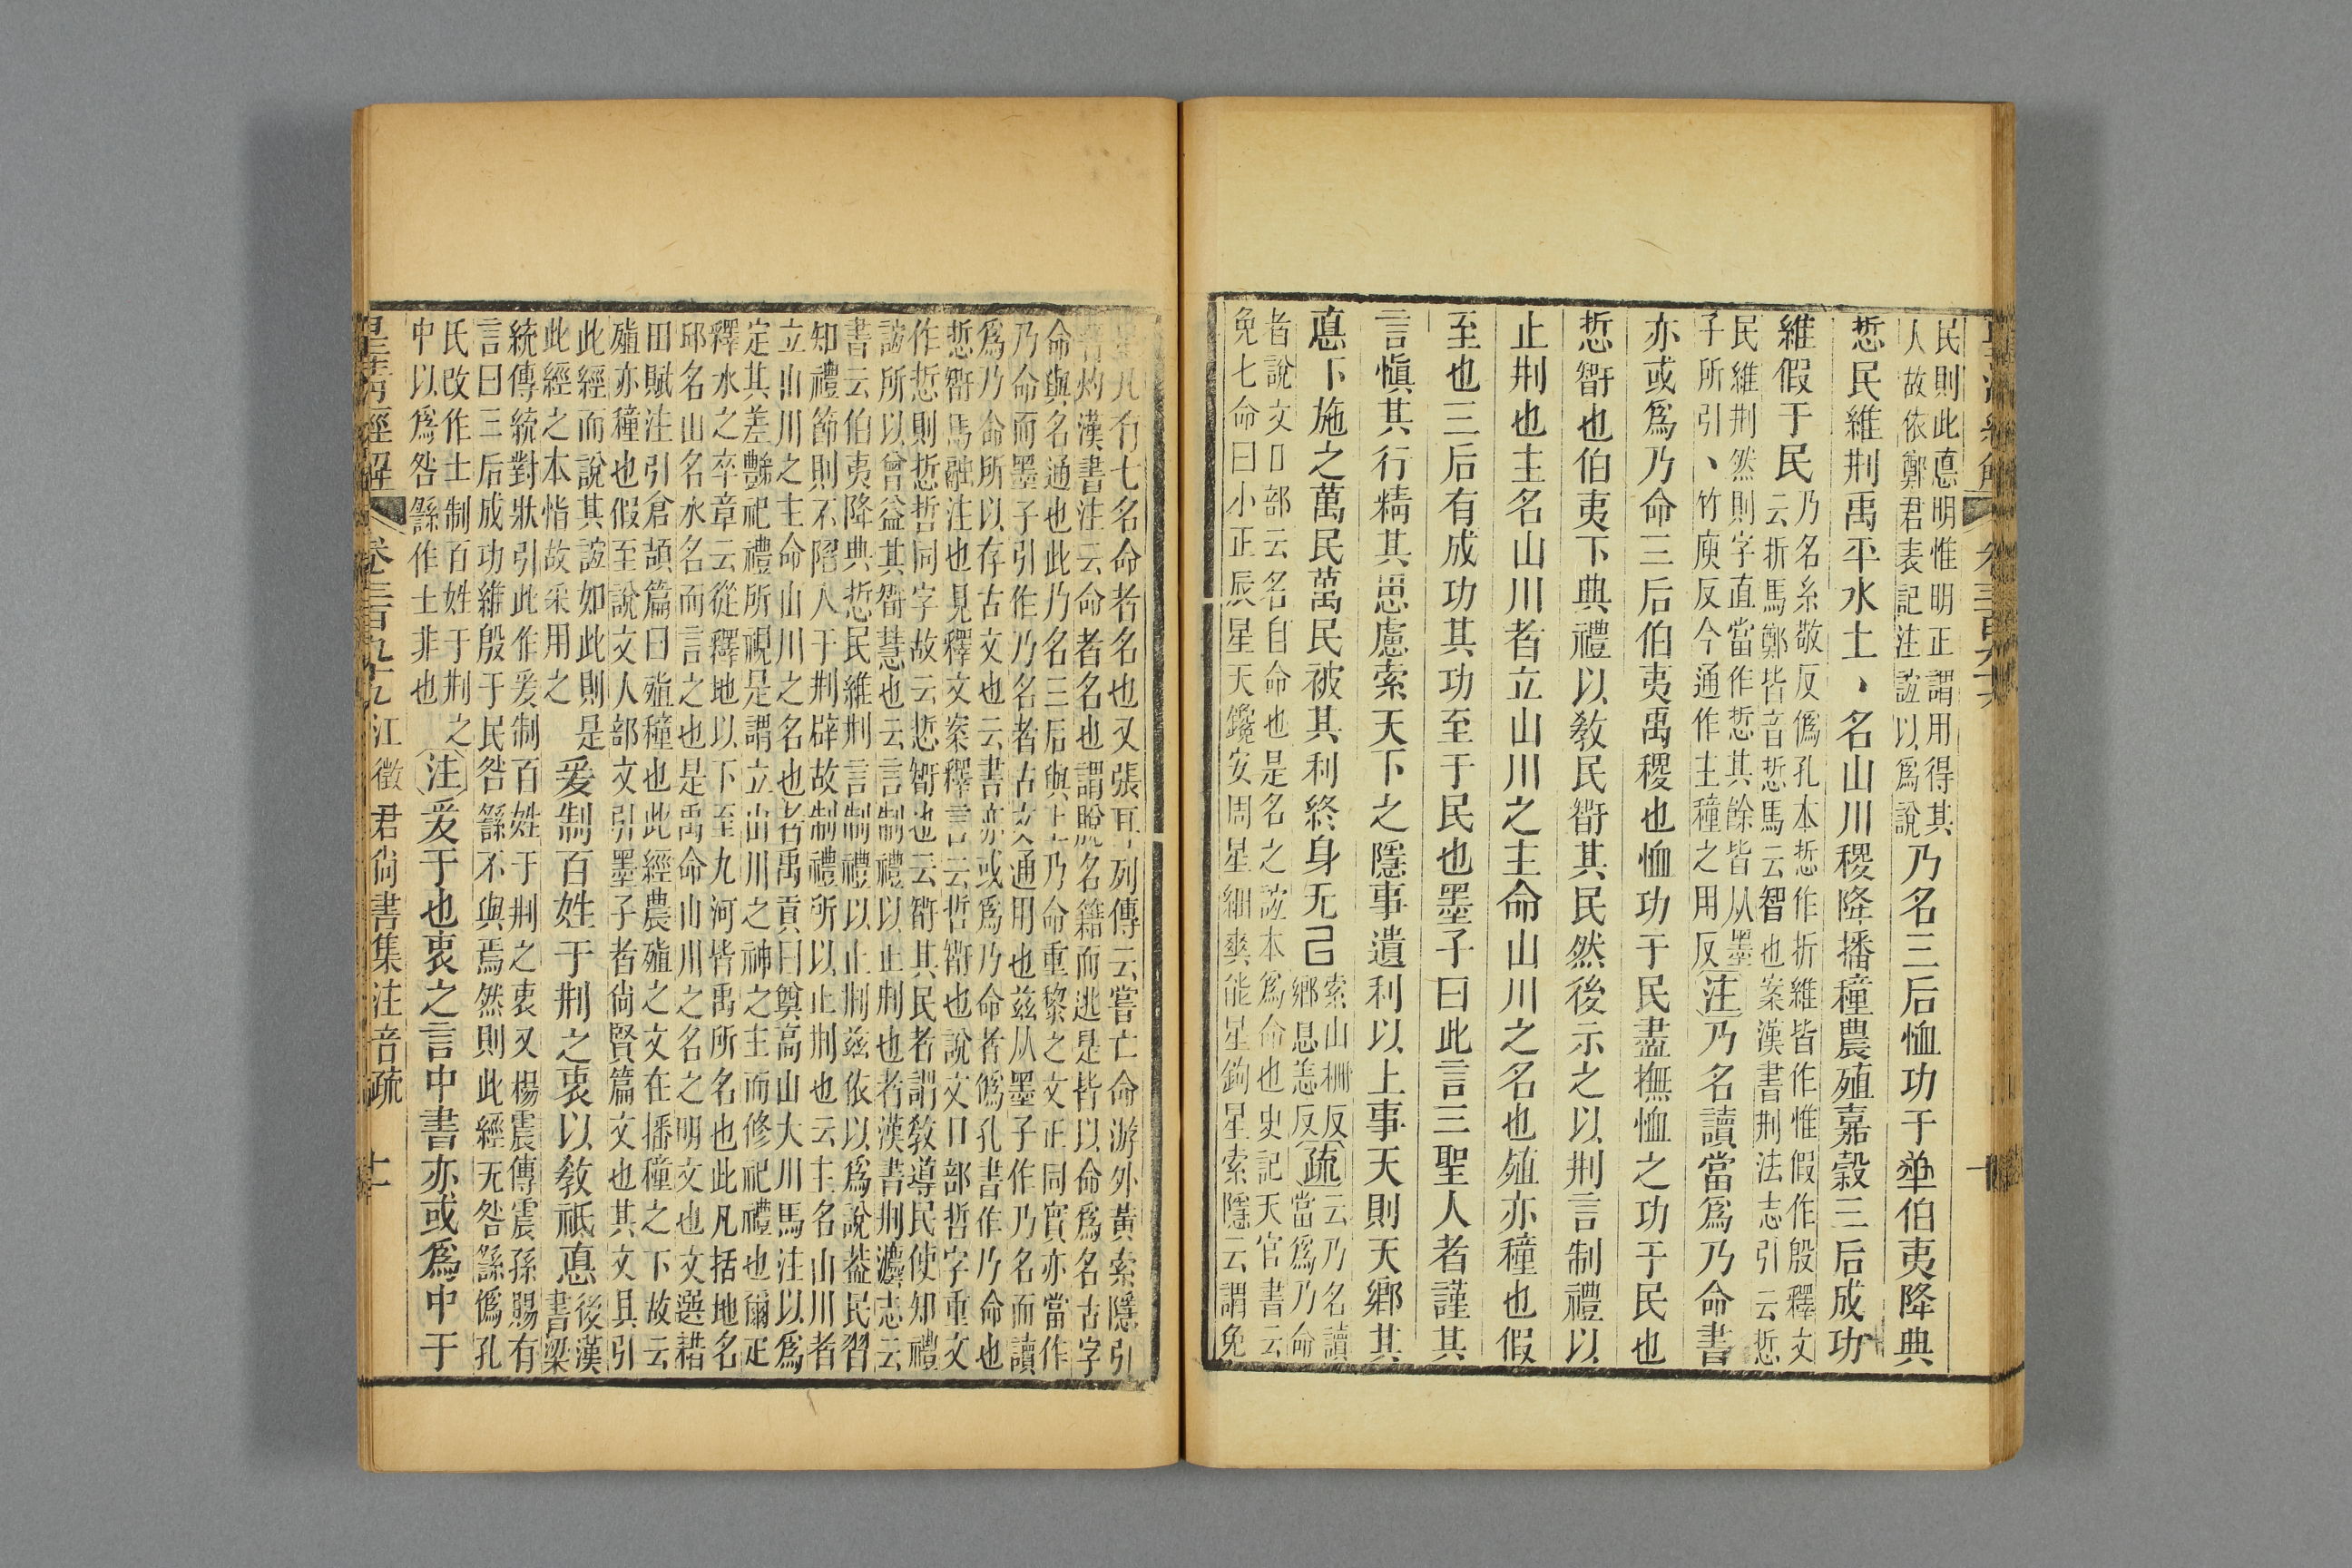 民則此悳明惟明正謂用得其
人故依鄭君表記注誼以爲說
乃名三后恤功于民伯夷降典
悊民維𠛬禹平水土丶名山川稷降播穜農殖嘉穀三后成功
維假于民
乃名糸敬反僞孔本悊作折維皆作惟假作殷釋文
云折馬鄭皆音悊馬云智也案漢書𠛬法志引云悊
民維𠛬然則字直當作悊其餘皆从墨
子所引丶竹庾反今通作主穜之用反
注乃名讀當爲乃命書
亦或爲乃命三后伯夷禹稷也恤功于民盡撫恤之功于民也
悊䚽也伯夷下典禮以敎民䚽其民然後示之以𠛬言制禮以
止𠛬也主名山川者立山川之主命山川之名也殖亦穜也假
至也三后有成功其功至于民也墨子曰此言三聖人者謹其
言愼其行精其思慮索天下之隱事遺利以上事天則天鄉其
悳下施之萬民萬民被其利終身无已
索山柵反
鄉息恙反
疏
云乃名讀
當爲乃命
者說文口部云名自命也是名之誼本爲命也史記天官書云
免七命曰小正辰星天欃安周星細爽能星鉤星索隱云謂免
星凡有七名命者名也又張耳列傳云嘗亡命游外黃索隱引
晉灼漢書注云命者名也謂脫名籍而逃是皆以命爲名古字
命與名通也此乃名三后與上乃命重黎之文正同實亦當作
乃命而墨子引作乃名者古文通用也茲从墨子作乃名而讀
爲乃命所以存古文也云書亦或爲乃命者僞孔書作乃命也
悊䚽馬融注也見釋文案釋言云哲䚽也說文口部哲字重文
作悊則悊哲同字故云悊䚽也云䚽其民者謂敎導民使知禮
誼所以曾益其䚽慧也云言制禮以止𠛬也者漢書𠛬灋志云
書云伯夷降典悊民維𠛬言制禮以止𠛬茲依以爲說葢民習
知禮節則不陷入于𠛬辟故制禮所以止𠛬也云主名山川者
立山川之主命山川之名也者禹貢曰奠高山大川馬注以爲
定其差豑祀禮所視是謂立山川之神之主而修祀禮也爾疋
釋水之卒章云從釋地以下至九河皆禹所名也此凡括地名
邱名山名水名而言之也是禹命山川之名之明文也文選耤
田賦注引倉頡篇曰殖穜也此經農殖之文在播穜之下故云
殖亦穜也假至說文人部文引墨子者尙賢篇文也其文具引
此經而說其誼如此則是
此經之本恉故采用之
爰制百姓于𠛬之衷以敎祗悳
後漢
書梁
統傳統對狀引此作爰制百姓于𠛬之衷又楊震傳震孫賜有
言曰三后成功維殷于民咎繇不與焉然則此經无咎繇僞孔
氏改作士制百姓于𠛬之
中以爲咎繇作士非也
注爰于也衷之言中書亦或爲中于
皇淸經解 卷三百九十九 江徵君尙書集注音疏 十一